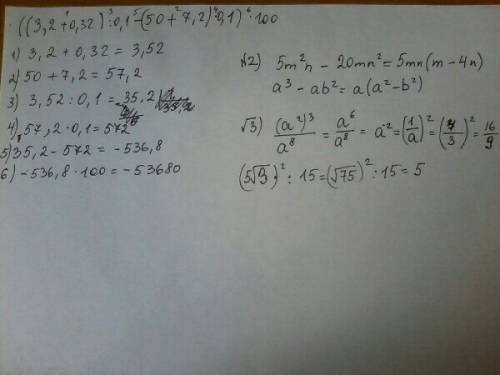 ((3,2 + 0,32) : 0,1 - (50 + 7,2) · 0,1) · 100
1) 3,2 + 0,32 = 3,52
2) 50 + 7,2 = 57,2
3) 3,52 : 0,1 = 35,2
4) 57,2 · 0,1 = 572
5) 35,2 - 572 = -536,8
6) -536,8 · 100 = -53680
№2) 5m²n - 20mn² = 5mn(m - 4n)
a³ - ab² = a(a² - b²)
√3) (a²)³/a⁸ = a⁶/a⁸ = a⁻² = (1/a)² = (4/3)² = 16/9
(5√3)² : 15 = (√75)² : 15 = 5